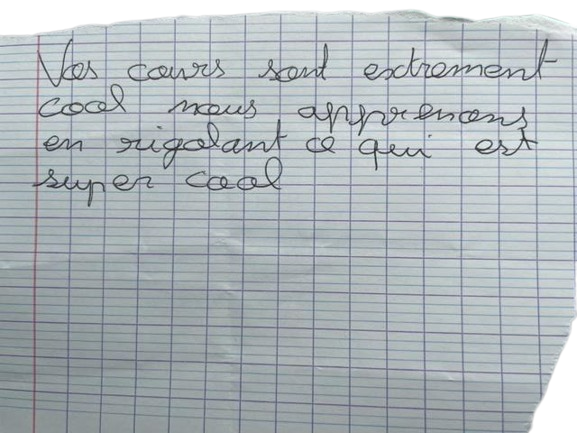 Vos cours sont extrement
cool nous apprenons
en rigolant ce qui est
super cool